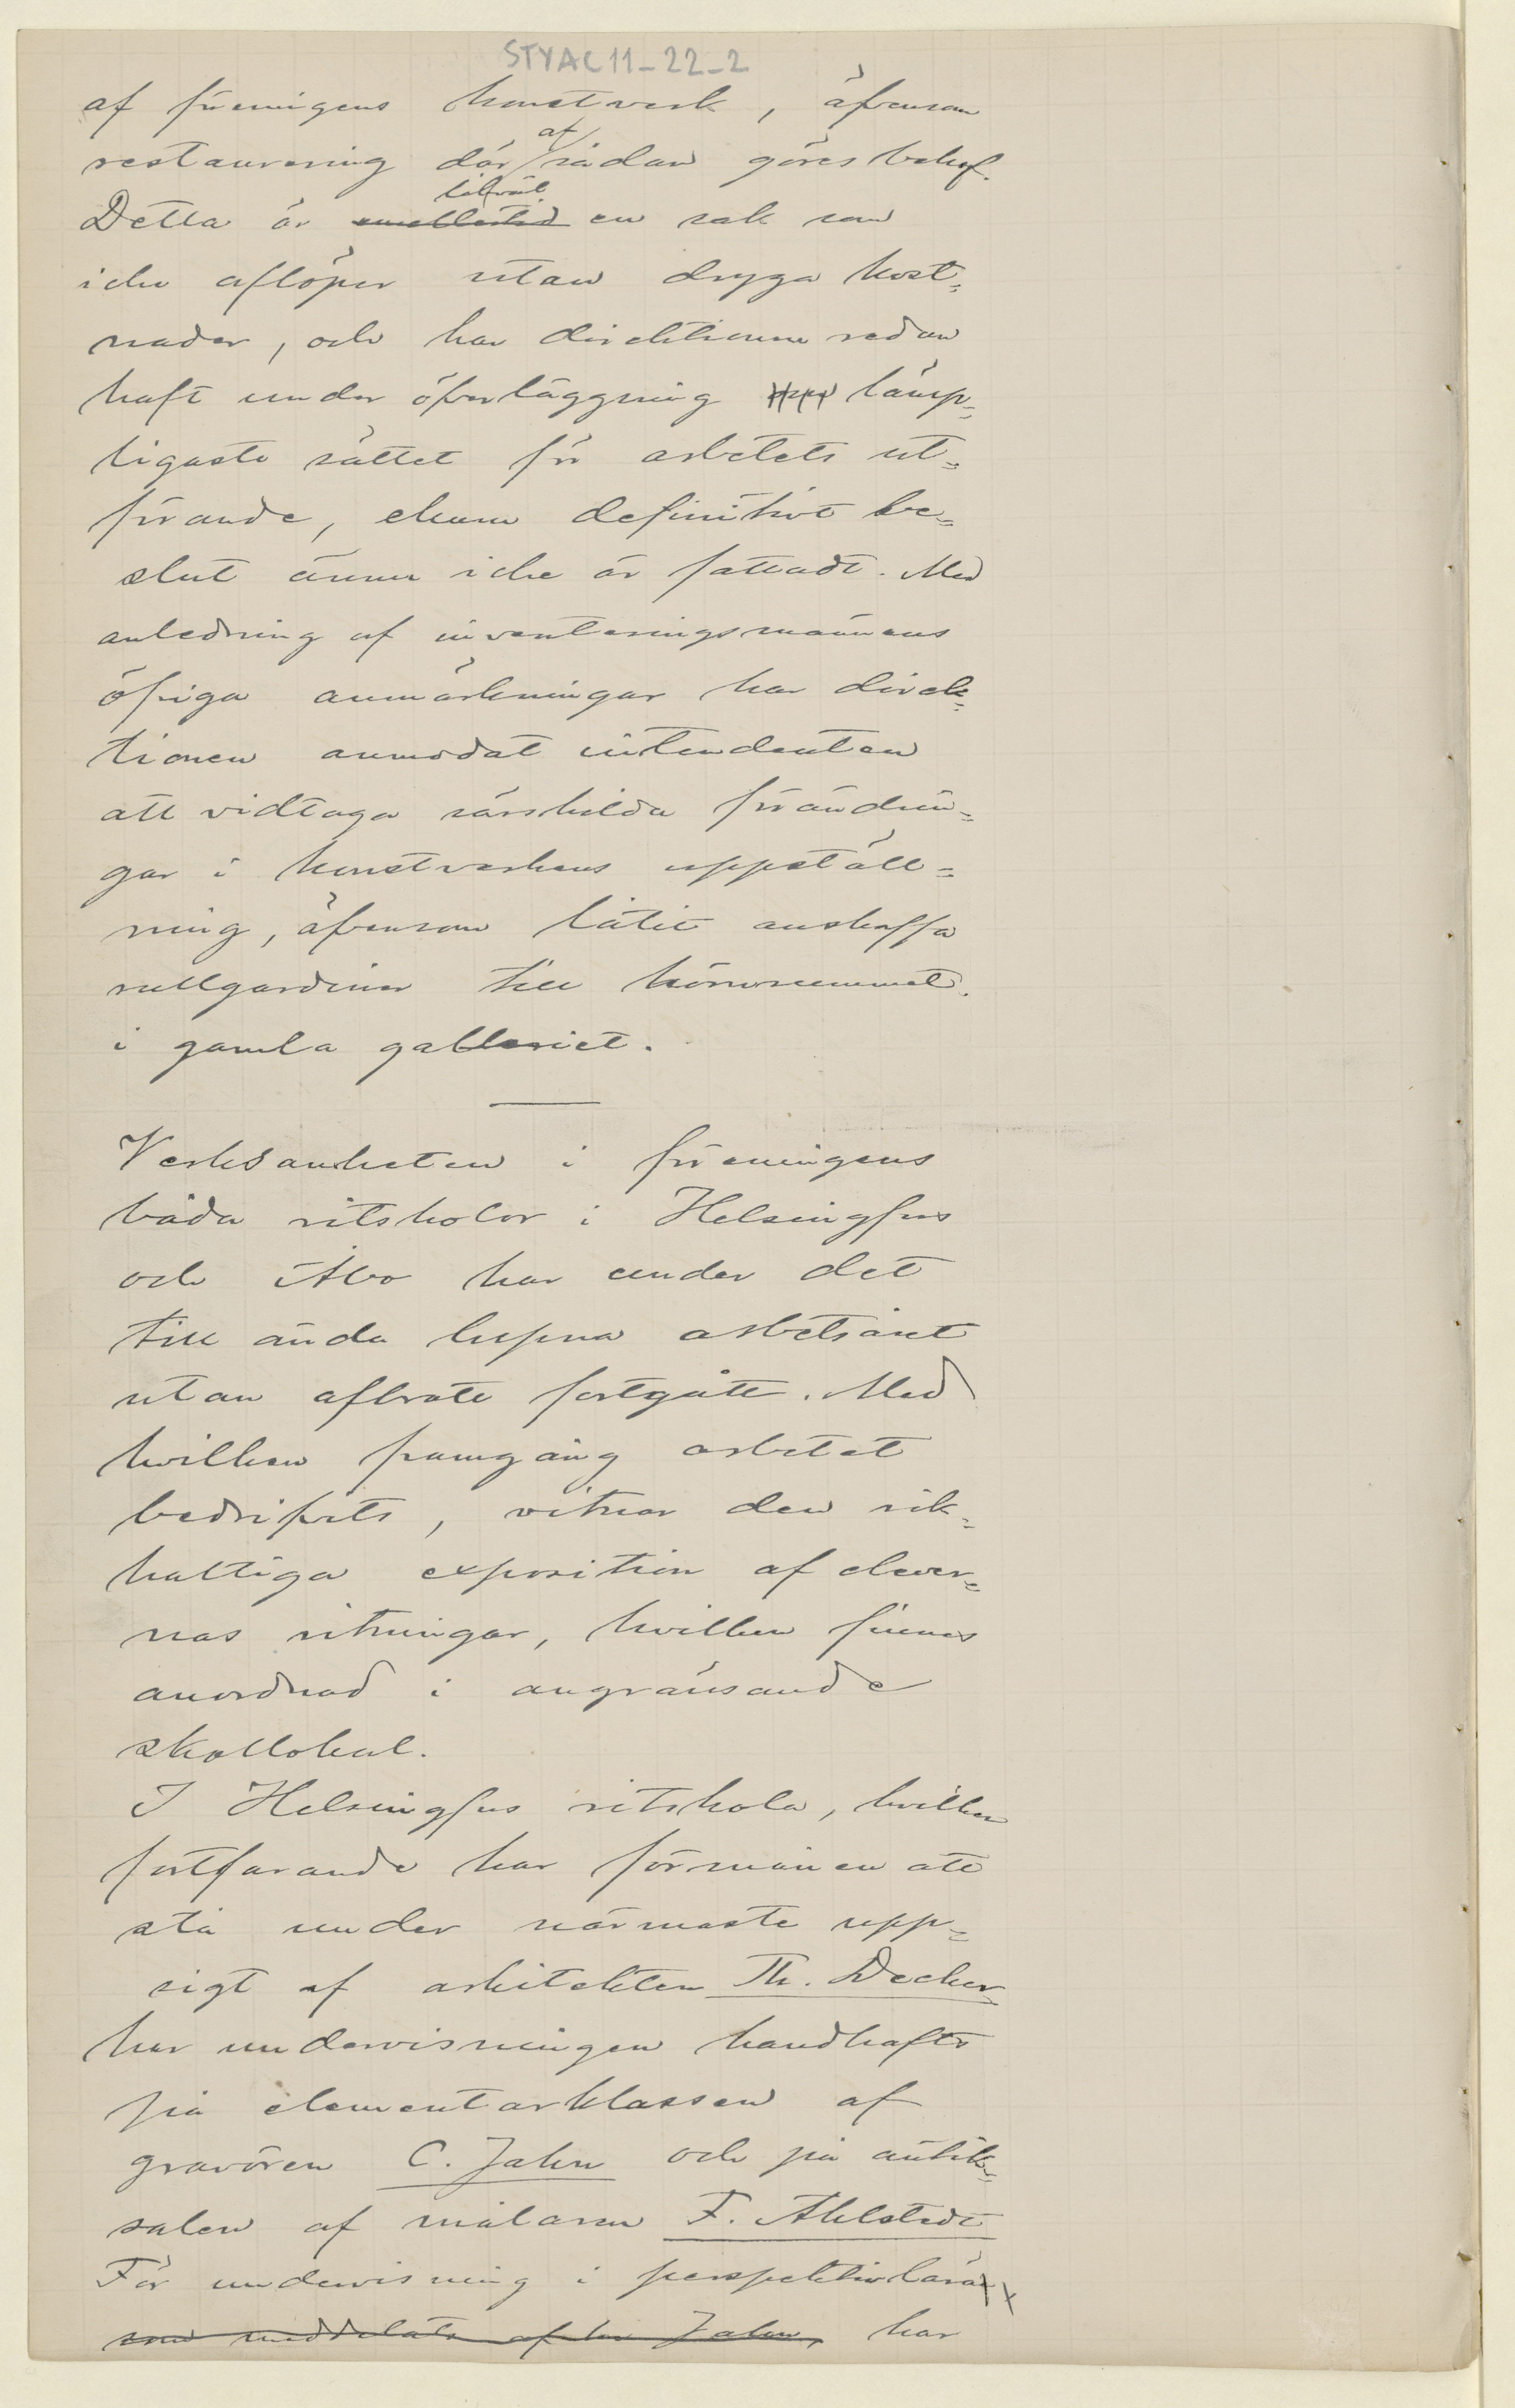 STYAC11-22-2
af föreningens konstverk, äfvensom
restaurering där af sådan göres behof.
Detta är likväl en sak som
icke aflöper utan dryga kost=
nader, och har direktionen redan
haft under öfverläggning lämp=
ligaste sättet för arbetets ut=
förande, ehuru definitivt be=
slut ännu icke är fattadt. Med
anledning af inventeringsmännens
öfriga anmärkningar har direk=
tionen anmodat intendenten
att vidtaga särskilda förändrin=
gar i konstverkens uppställ=
ning, äfvensom låtit anskaffa
rullgardiner till hörnrummet
i gamla galleriet.
Verksamheten i föreningens
båda ritskolor i Helsingfors
och Åbo har under det
till ända lupna arbetsåret
utan afbrott fortgått. Med
hvilken framgång arbetet
bedrifvits, vitnar den rik=
haltiga exposition af elever=
nas ritningar, hvilken finnes
anordnad i angränsande
skollokal.
I Helsingfors ritskola, hvilken
fortfarande har förmånen att
stå under närmaste upp=
sigt af arkitekten Th. Decker
har undervisningen handhafts
på elementarklassen af
gravören C. Jahn och på antik=
salen af målaren F. Ahlstedt
För undervisning i perspektivlära
som meddelats af hr Jahn, har